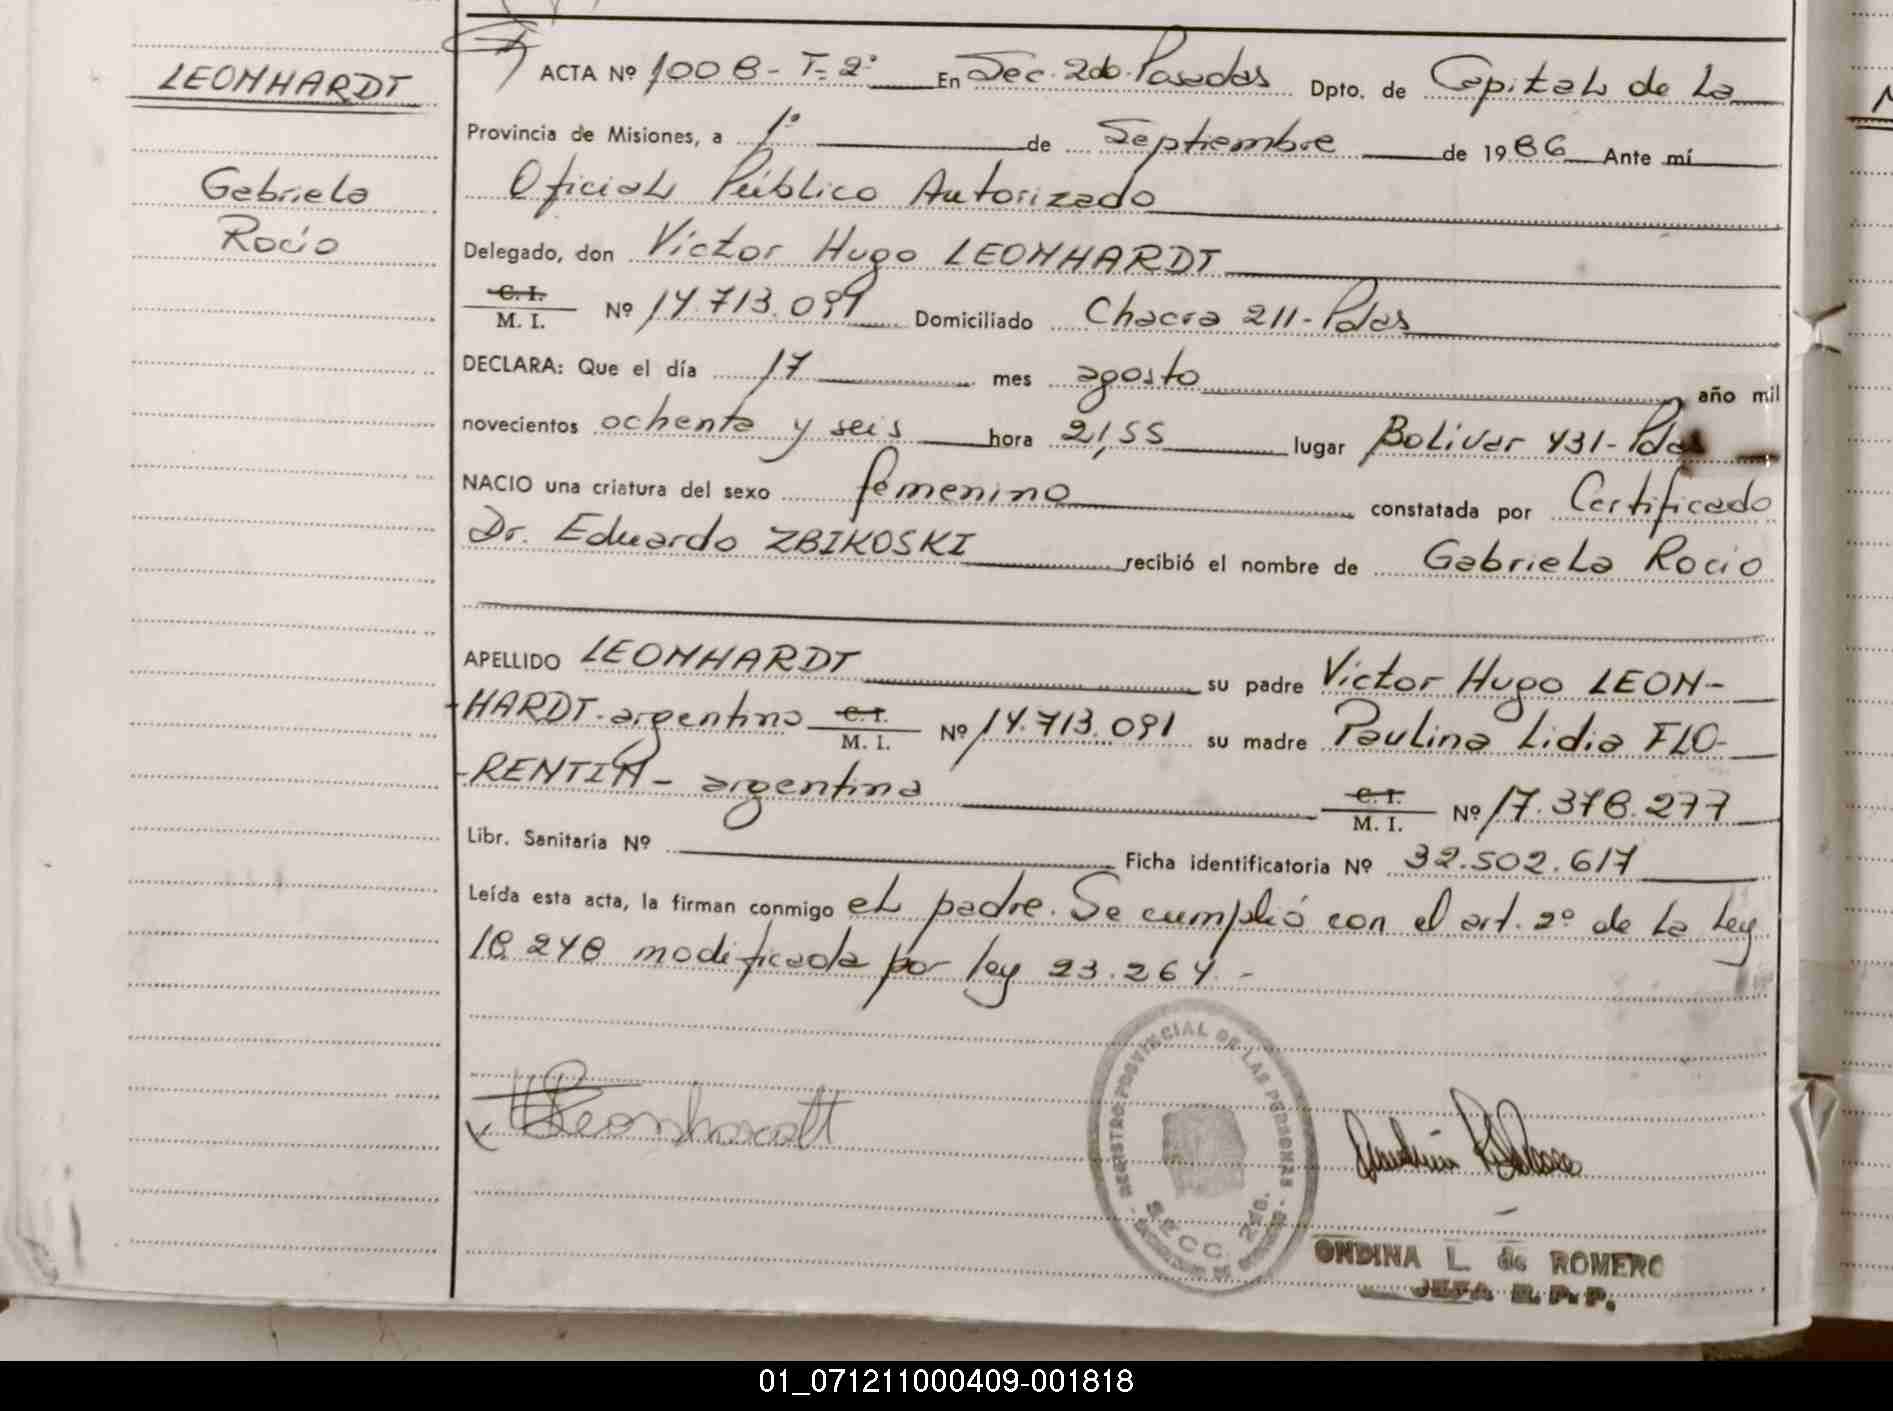 LEONHARDT
Gabriela
Rocío
ACTA Nº 1008- T= 2º En Sec. 2da. Posadas Dpto. de Capital de La
Provincia de Misiones, a 1º de Septiembre de 1986 Ante mí
Oficial Público Autorizado
Delegado, don Víctor Hugo LEONHARDT
C. I.
M. I. Nº 14.713.091 Domiciliado Chacra 211-Pdas
DECLARA: Que el día 17 mes agosto año mil
novecientos ochenta y seis hora 21,55 lugar Bolivar 431-Pdas
NACIO una criatura del sexo femenino constatada por Certificado
Dr. Eduardo ZBIKOSKI recibió el nombre de Gabriela Rocio
APELLIDO LEONHARDT su padre Víctor Hugo LEON-
-HARDT-argentino C. I. M. I. Nº 14.713.091 su madre Paulina Lidia FLO-
-RENTIN- argentina C. I. M. I. Nº 17.378.277
Libr. Sanitaria Nº Ficha identificatoria Nº 32.502.617
Leída esta acta, la firman conmigo el padre. Se cumplió con el art. 2º de la Ley
18.248 modificada por ley 23.264.-
Leonhardt
REGISTRO PROVINCIAL DE LAS PERSONAS
SECC. 2da.
ONDINA L. de ROMERO
JEFA R. P. P.
01_071211000409-001818